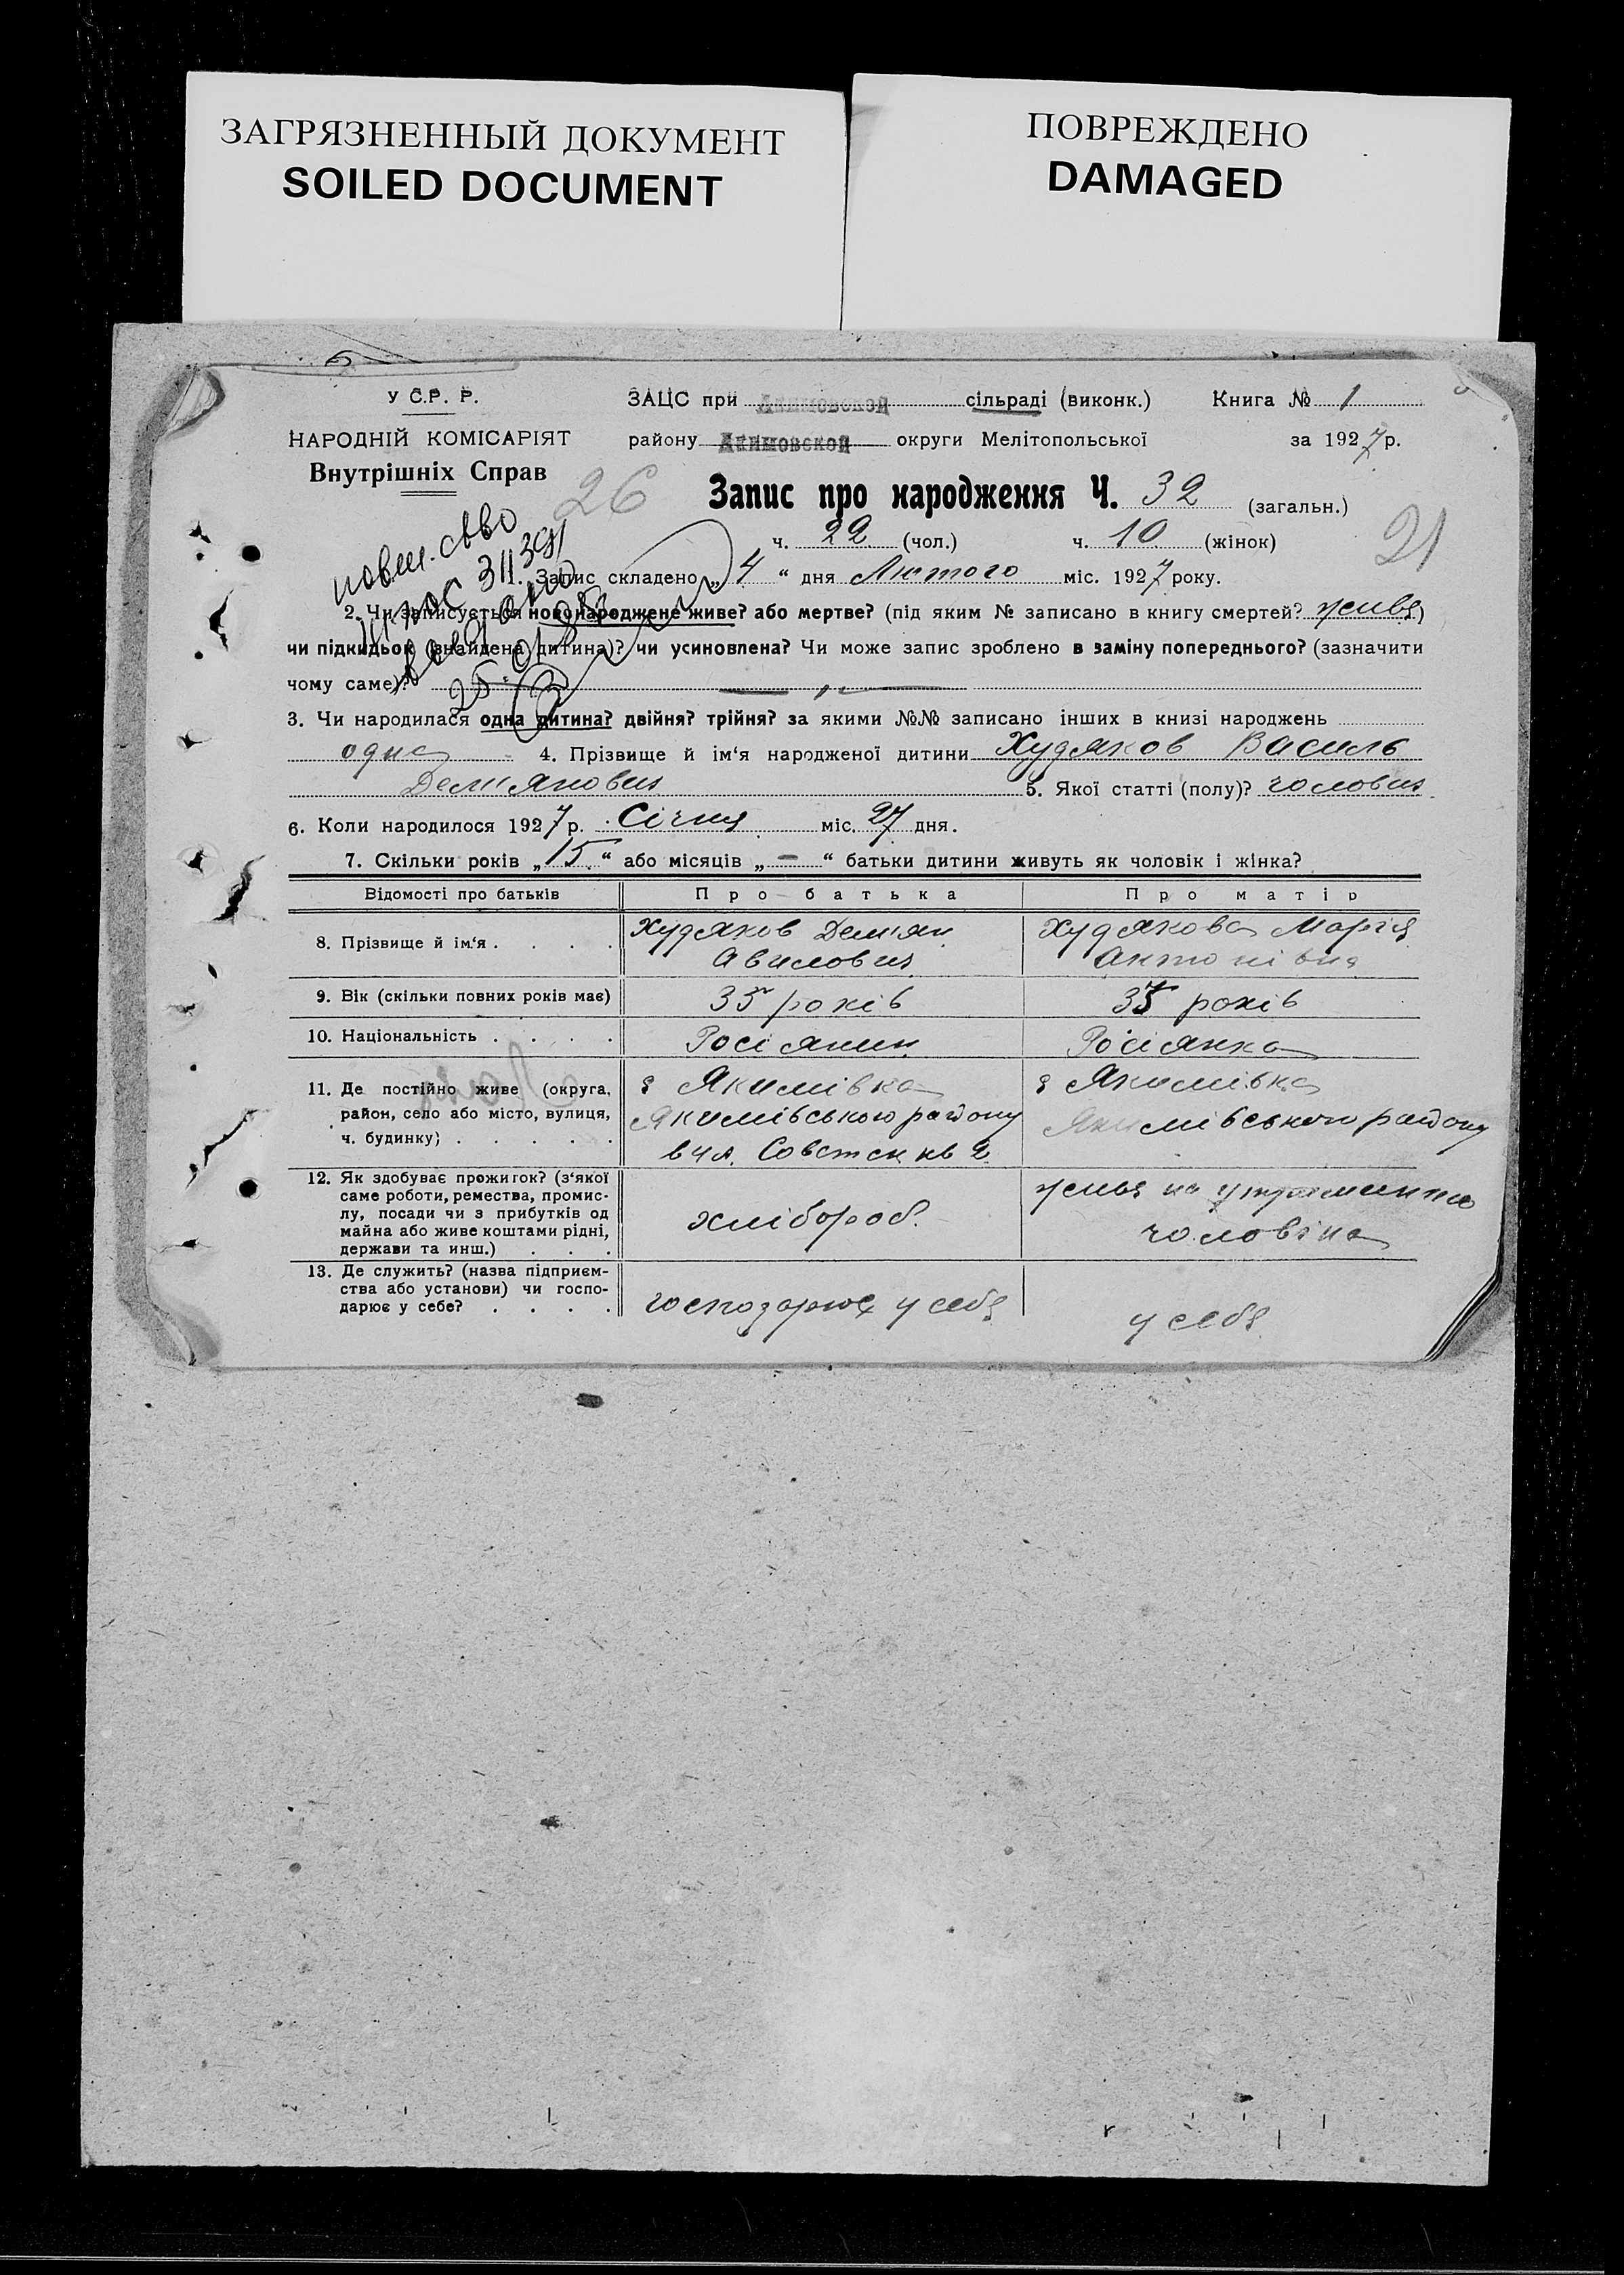 ЗАГРЯЗНЕННЫЙ ДОКУМЕНТ
SOILED DOCUMENT
ПОВРЕЖДЕНО
DAMAGED
У С.Р. Р.
НАРОДНІЙ КОМІСАРІЯТ
Внутрішніх Справ
ЗАЦС при Акимовской сільраді (виконк.) Книга № 1
району Акимовской округи Мелітопольської за 1927 р.
26
Запис про народження Ч. 32 (загальн.)
21
ч. 22 (чол.) ч. 10 (жінок)
Запис складено „4“ дня Лютого міс. 1927 року.
2. Чи записується новонароджене живе? або мертве? (під яким № записано в книгу смертей? живе)
чи підкидьок (знайдена дитина)? чи усиновлена? Чи може запис зроблено в заміну попереднього? (зазначити
чому саме)?
3. Чи народилася одна дитина? двійня? трійня? за якими №№ записано інших в книзі народжень
одна 4. Прізвище й ім‘я народженої дитини Худяков Василь
Дем'янович 5. Якої статті (полу)? чоловіч.
6. Коли народилося 1927 р. Січня міс. 27 дня.
7. Скільки років „15“ або місяців „—“ батьки дитини живуть як чоловік і жінка?
Відомості про батьків Про батька Про матір
8. Прізвище й ім‘я . . . . Худяков Дем'ян Худякова Марія
Авилович Антонівна
9. Вік (скільки повних років має) 35 років 35 років
10. Національність . . . . Росіянин Росіянка
11. Де постійно живе (округа, район, село або місто, вулиця, ч. будинку) . . . . .
с Якимівка
Якимівського району
вул. Советск № 2
с Якимівка
Якимівського району
12. Як здобуває прожиток? (з‘якої саме роботи, ремества, промислу, посади чи з прибутків од майна або живе коштами рідні, держави та инш.) . . .
хлібороб.
живе на утриманні
чоловіка
13. Де служить? (назва підприємства або установи) чи господарює у себе? . . . .
господарює у себе
у себе